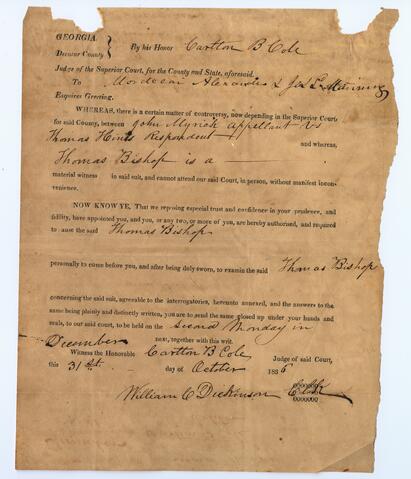 GEORGIA,
Decatur County } By his Honor Carlton B Cole
Judge of the Superior Court, for the County and State, aforesaid.
To Mordecai Alexander & Jas
Esquires Greeting.
WHEREAS, there is a certain matter of controversy, now depending in the Superior Court
for said County, between John Myrick Appellant Vs
Thomas Hines Respondent and whereas,
Thomas Bishop is a
material witness in said suit, and cannot attend our said Court, in person, without manifest incon-
venience.
NOW KNOW YE, That we reposing especial trust and confidence in your prudence, and
fidelity, have appointed you, and you, or any two, or more of you, are hereby authorised, and required
to cause the said Thomas Bishop
personally to come before you, and after being duly sworn, to examine the said Thomas Bishop
concerning the said suit, agreeable to the interrogatories, hereunto annexed, and the answers to the
same being plainly and distinctly written, you are to send the same closed up under your hands and
seals, to our said court, to be held on the Second Monday in
December next, together with this writ.
Witness the Honorable Carlton B Cole Judge of said Court,
this 31st day of October 1836
William C Dickinson Clerk